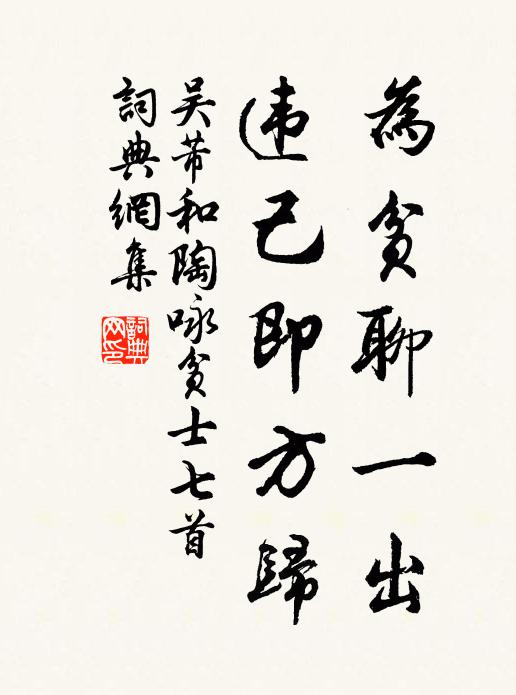 為貧聊一出
违己即方歸
吴芾和陶咏貧士七首
詞典網集
詞典
网印